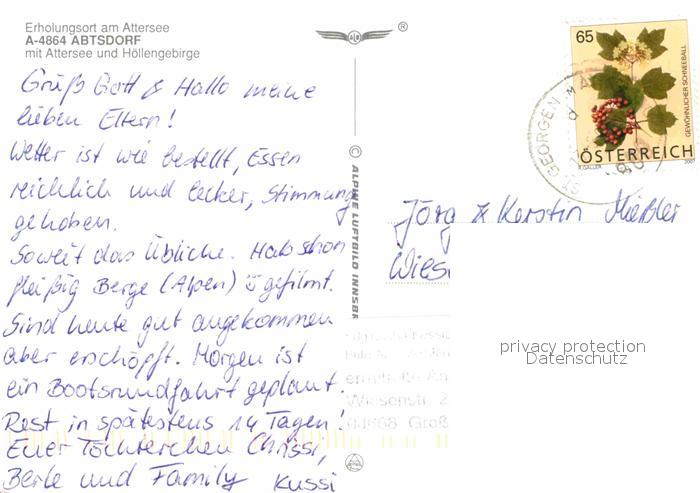 Erholungsort am Attersee
A-4864 ABTSDORF
mit Attersee und Höllengebirge
Grüß Gott & Hallo meine
lieben Eltern!
Wetter ist wie bestellt, Essen
reichlich und lecker, Stimmung
gehoben.
Soweit das Übliche. Hab schon
fleißig Berge (Alpen) gefilmt.
Sind heute gut angekommen
aber erschöpft. Morgen ist
ein Bootsrundfahrt geplant.
Rest in spätestens 14 Tagen!
Euer Töchterchen Chrissi,
Berle und Family Kussi
®
© ALPINE LUFTBILD INNSBR
65
GEWÖHNLICHER SCHNEEBALL
ÖSTERREICH
2007
ST. GEORGEN
Jörg & Kerstin Mießler
Wies
Wiesenstr. 2
01608 Groß
privacy protection
Datenschutz